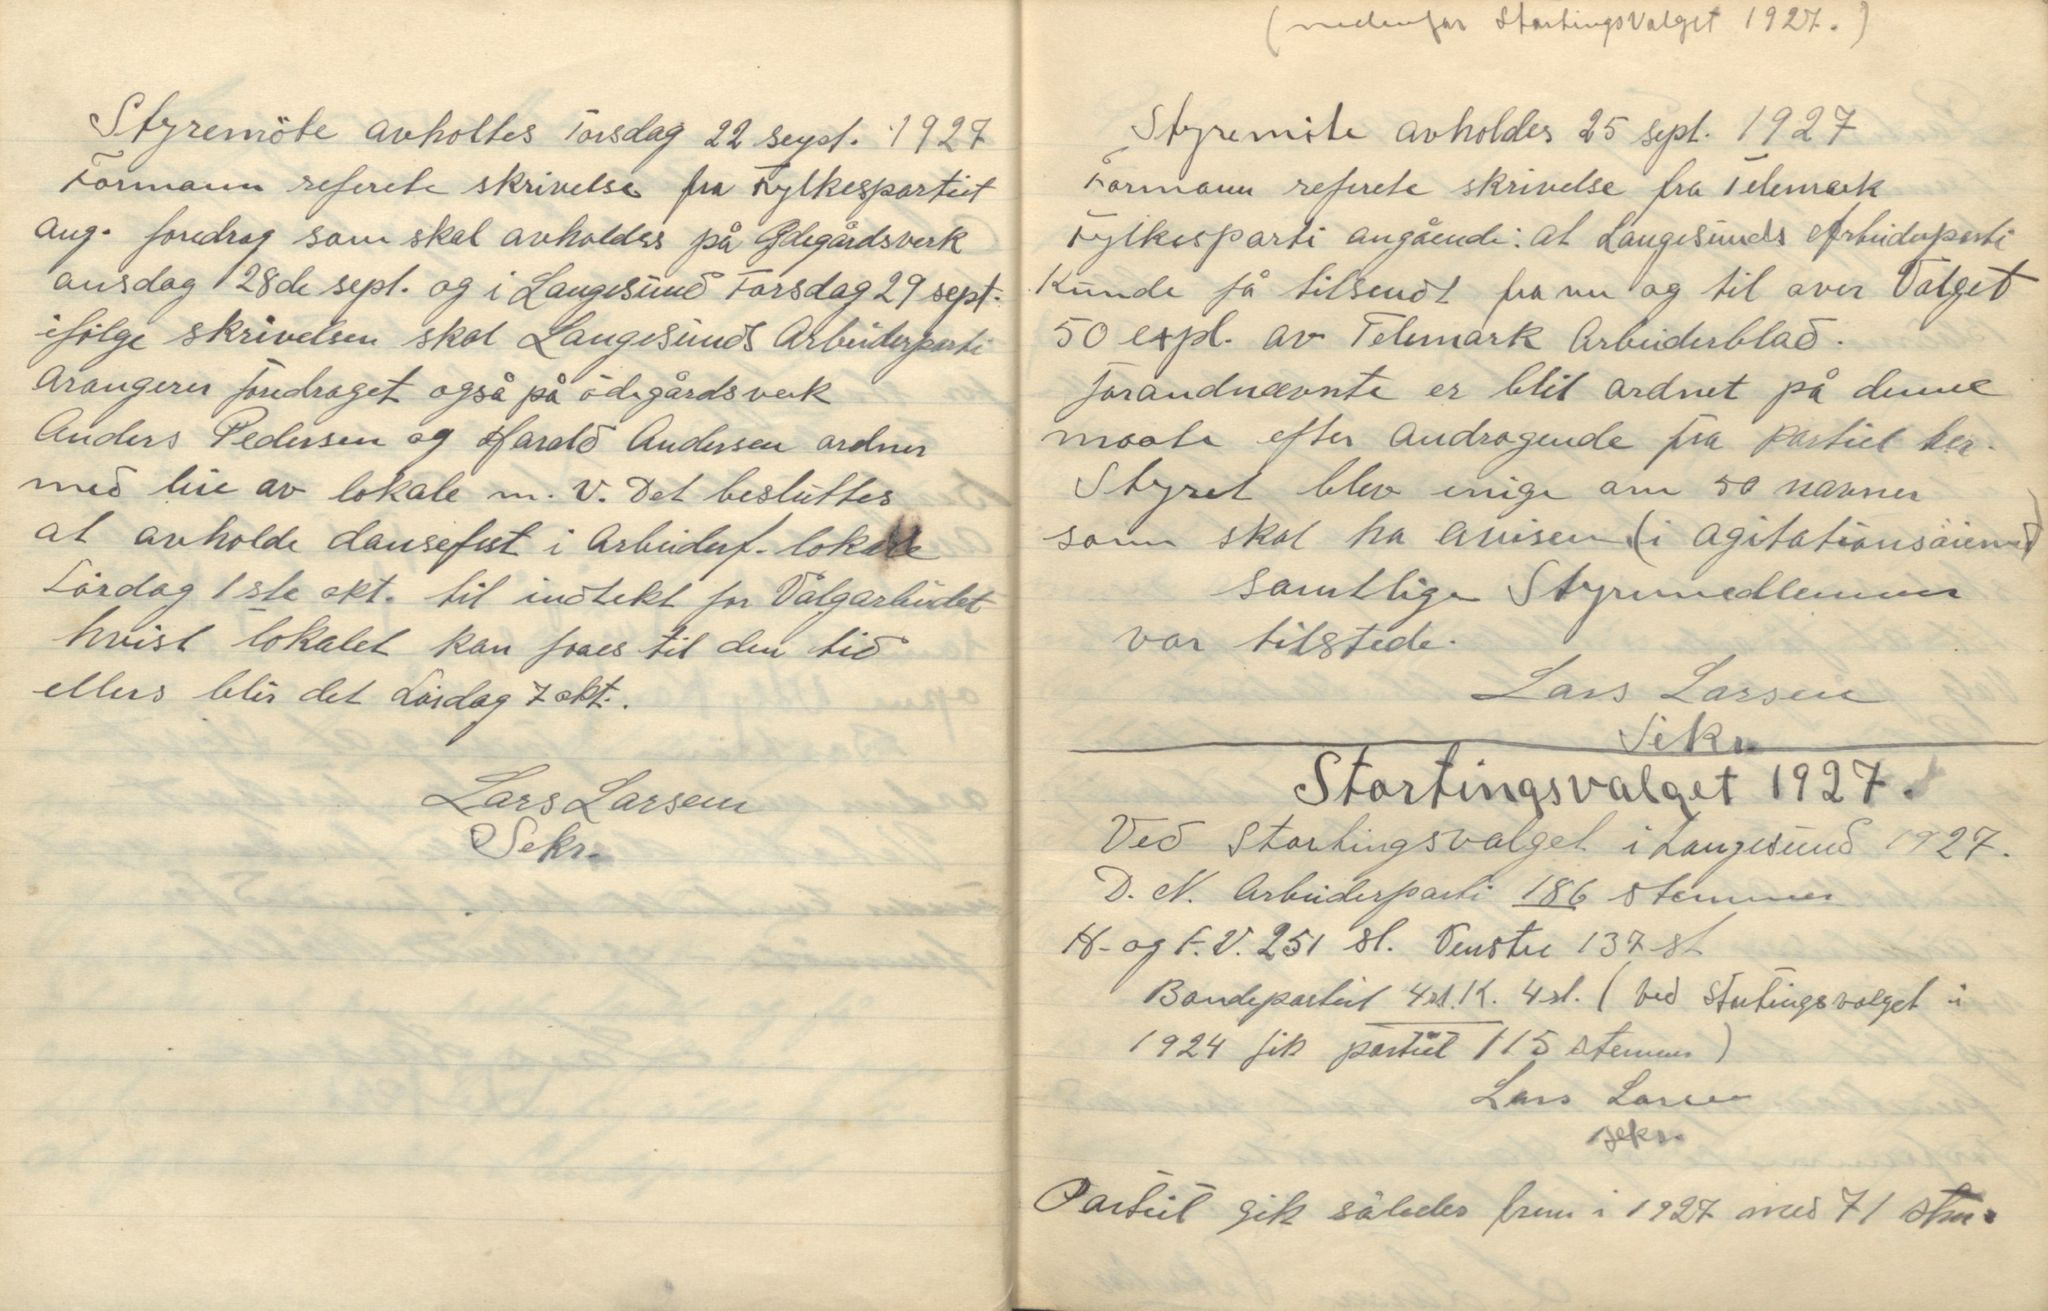 Styremöte avholtes Torsdag 22 sept. 1927
Formann referete skrivelse fra Fylkespartiet
ang. foredrag som skal avholdes på Ødegårdsverk
onsdag 28de sept. og i Langesund Torsdag 29 sept.
ifölge skrivelsen skal Langesunds Arbeiderparti
Arangerer foredraget også på ödegårdsverk
Anders Pedersen og Harald Andersen ordner
med leie av lokale m. V. Det besluttes
at avholde dansefest i Arbeiderf. lokale
Lördag 1ste okt. til indtekt for Valgarbeidet
hvist lokalet kan faaes til den tid
ellers blir det Lördag 7 okt.
Lars Larsen
Sekr.
(nedenfor Stortingsvalget 1927.)
Styremöte avholdes 25 sept. 1927
Formann referete skrivelse fra Telemark
Fylkesparti angående: at Langesunds Arbeiderparti
Kunde få tilsendt fra nu og til over Valget
50 expl. av Telemark Arbeiderblad.
forandnævnte er blit ordnet på denne
maate efter andragende fra partiet her.
Styret blev enige om 50 navner
som skal ha avisen (i agitationsöiemed)
samtlige Styremedlemmer
var tilstede.
Lars Larsen
Sekr.
Stortingsvalget 1927.
Ved Stortingsvalget i Langesund 1927.
D. N. Arbeiderparti 186 stemmer
H. og F. V. 251 st. Venstre 137 st
Bondepartiet 4 st. K. 4 st. (Ved Stortingsvalget i
1924 fik partiet 115 stemmer)
Lars Larsen
sekr.
Partiet gik således frem i 1927 med 71 stm.